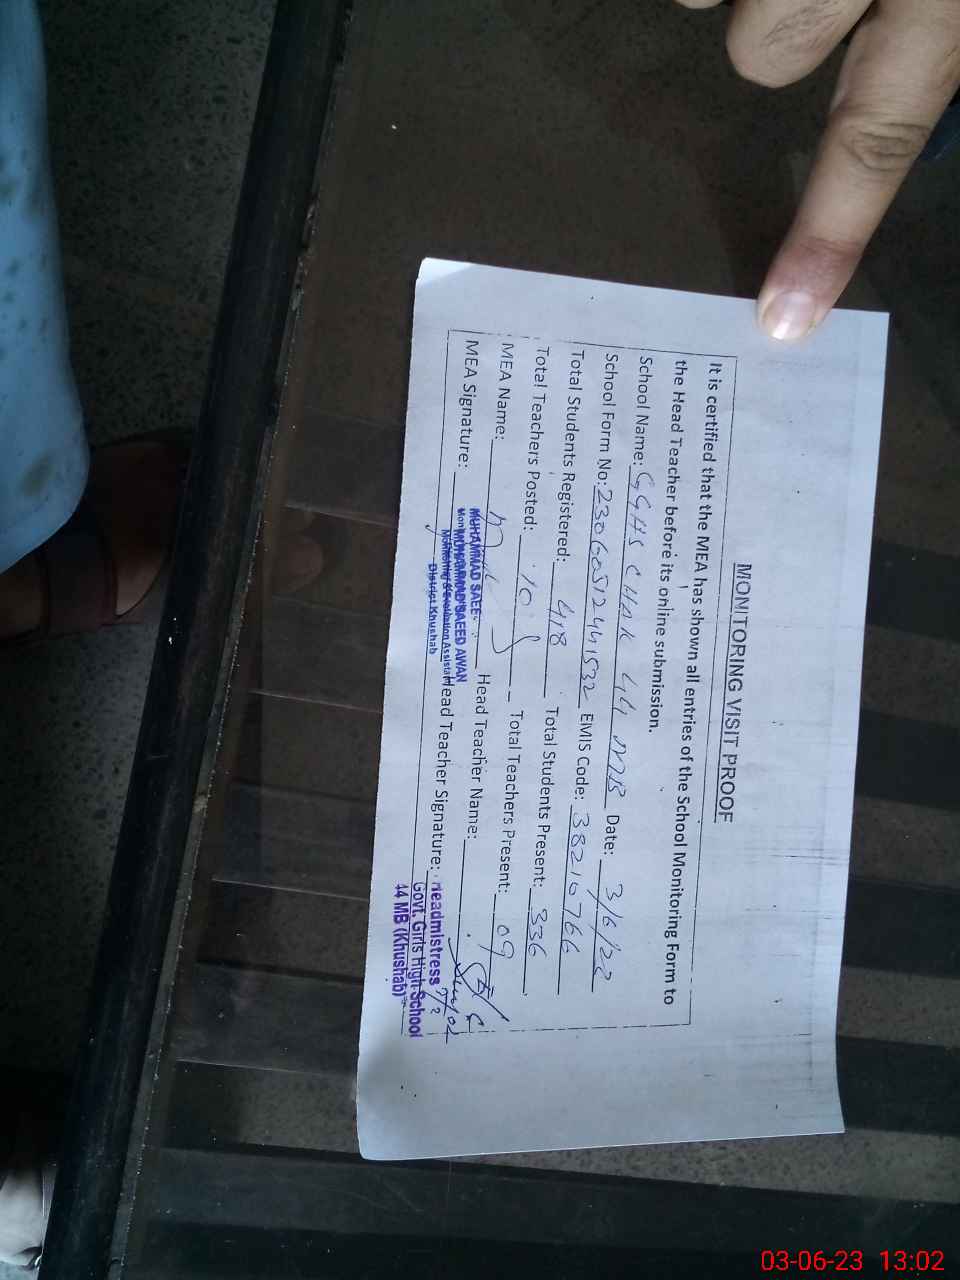 MONITORING VISIT PROOF
It is certified that the MEA has shown all entries of the School Monitoring Form to
the Head Teacher before its online submission.
School Name: GGHS CHAK 44 MB Date: 3/6/22
School Form No: 23060512441532 EMIS Code: 38210766
Total Students Registered: 418 Total Students Present: 336
Total Teachers Posted: 10 Total Teachers Present: 09
MEA Name: Head Teacher Name:
MEA Signature: Head Teacher Signature:
MUHAMMAD SAEED
MUHAMMAD SAEED AWAN
Monitoring & Evaluation Assistant
District Khushab
Headmistress
Govt. Girls High School
44 MB (Khushab)
03-06-23 13:02